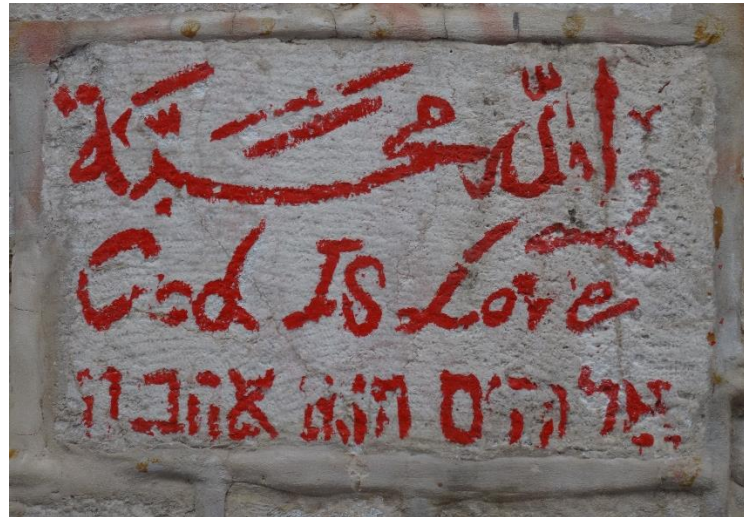 الله محبّة
God Is Love
אלהים הוא אהבה